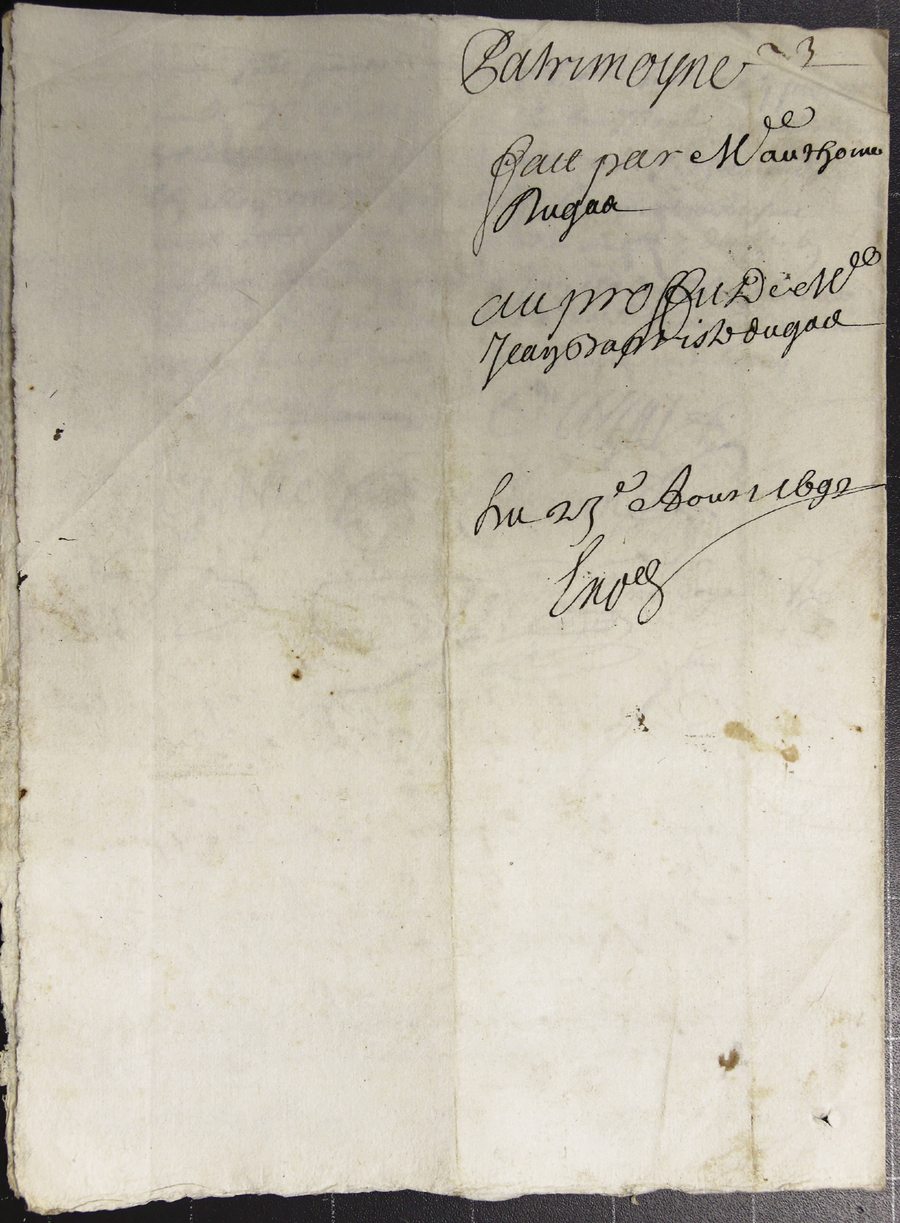 Patrimoyne 3
fait par Me anthoine
Dugad
au proffit De Me
Jean Baptiste dugad
Du 23e Aoust 1692